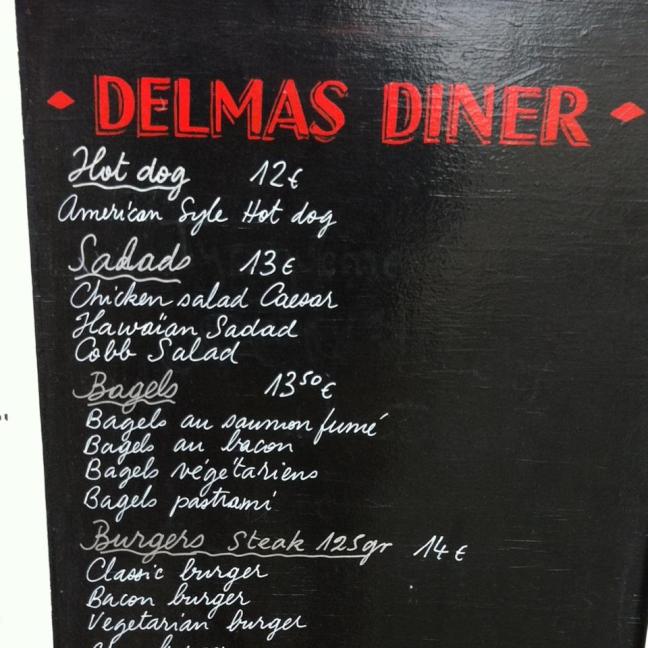 DELMAS DINER
Hot dog 12€
American Syle Hot dog
Salads 13€
Chicken salad Caesar
Hawaïan Sadad
Cobb Salad
Bagels 1350€
Bagels au saumon fumé
Bagels au bacon
Bagels végétariens
Bagels pastrami
Burgers Steak 125gr 14€
Classic burger
Bacon burger
Vegetarian burger